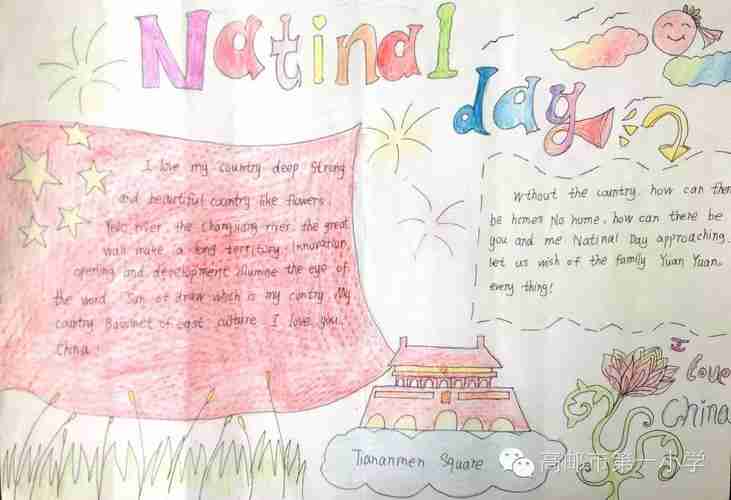 Natinal
day
I love my country deep Strong
and beautiful country like flowers.
Yello river, the Changjiang river, the great
wall make a long territory. Innovation,
opening and development illumine the eye of
the word. Sun of draw which is my cuntry My
country Bassinet of east culture I love you,
China!
Without the country, how can then
be homes No home, how can there be
you and me Natinal Day approaching,
let us wish of the family Yuan Yuan,
every thing!
I
love
China
Tiananmen Square
高邮市第一小学